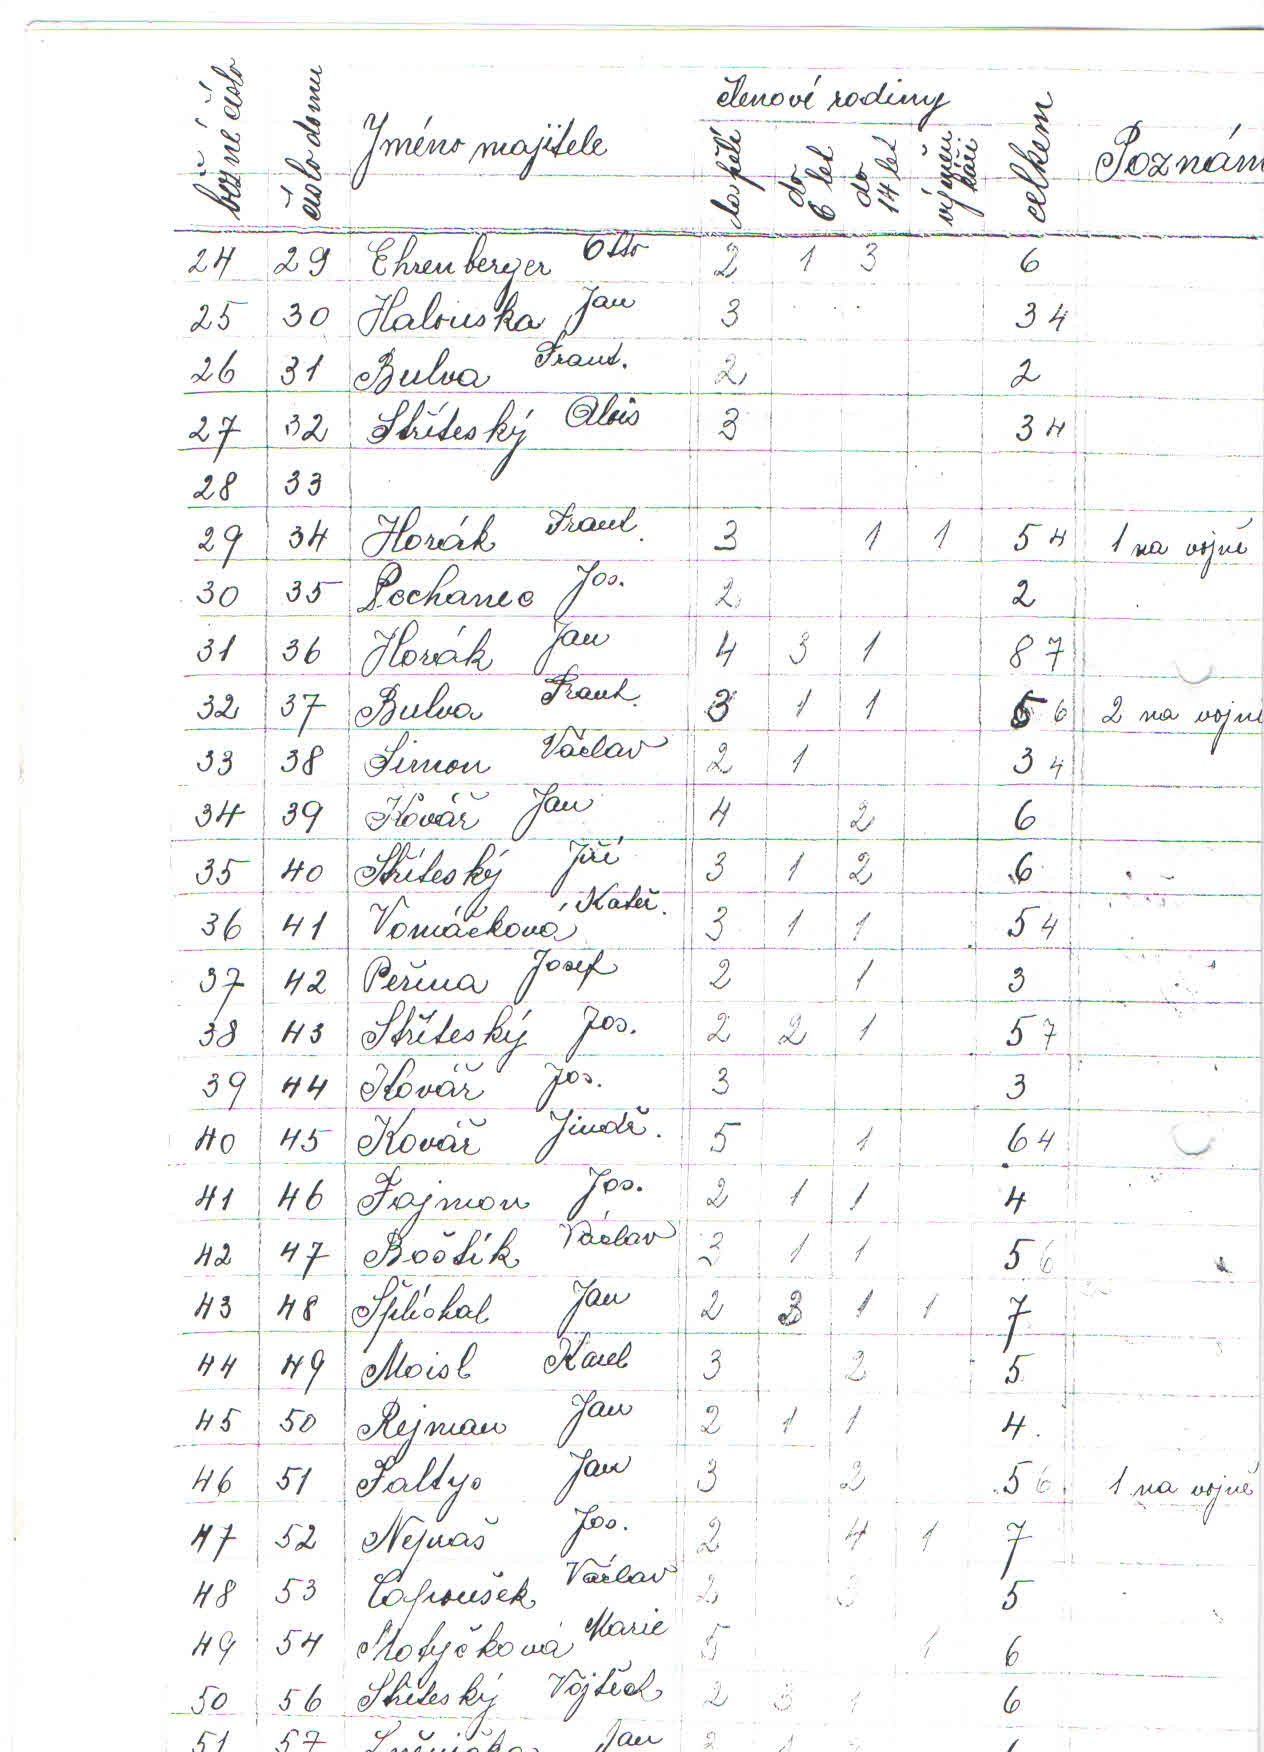 běžné číslo
číslo domu
Jméno majitele
členové rodiny
dospělí
do 6 let
do 14 let
výměnkáři
celkem
Poznám
24 29 Ehrenberger Otto 2 1 3 6
25 30 Halouska Jan 3 3 4
26 31 Bulva Frant. 2 2
27 32 Stříteský Alois 3 3 4
28 33
29 34 Horák Frant. 3 1 1 5 4 1 na vojně
30 35 Pechanec Jos. 2 2
31 36 Horák Jan 4 3 1 8 7
32 37 Bulva Frant. 3 1 1 5 6 2 na vojně
33 38 Simon Václav 2 1 3 4
34 39 Kovář Jan 4 2 6
35 40 Stříteský Jiří 3 1 2 6
36 41 Vomáčková Kateř. 3 1 1 5 4
37 42 Peřina Josef 2 1 3
38 43 Stříteský Jos. 2 2 1 5 7
39 44 Kovář Jos. 3 3
40 45 Kovář Jindř. 5 1 6 4
41 46 Fajmon Jos. 2 1 1 4
42 47 Boštík Václav 3 1 1 5 6
43 48 Šplíchal Jan 2 3 1 1 7
44 49 Moisl Karel 3 2 5
45 50 Rejman Jan 2 1 1 4
46 51 Faltys Jan 3 2 5 6 1 na vojně
47 52 Nejvaš Jos. 2 4 1 7
48 53 Coufroušek Václav 2 3 5
49 54 Motyčková Marie 5 1 6
50 56 Stříteský Vojtěch 2 3 1 6
51 57 Jan 2 1